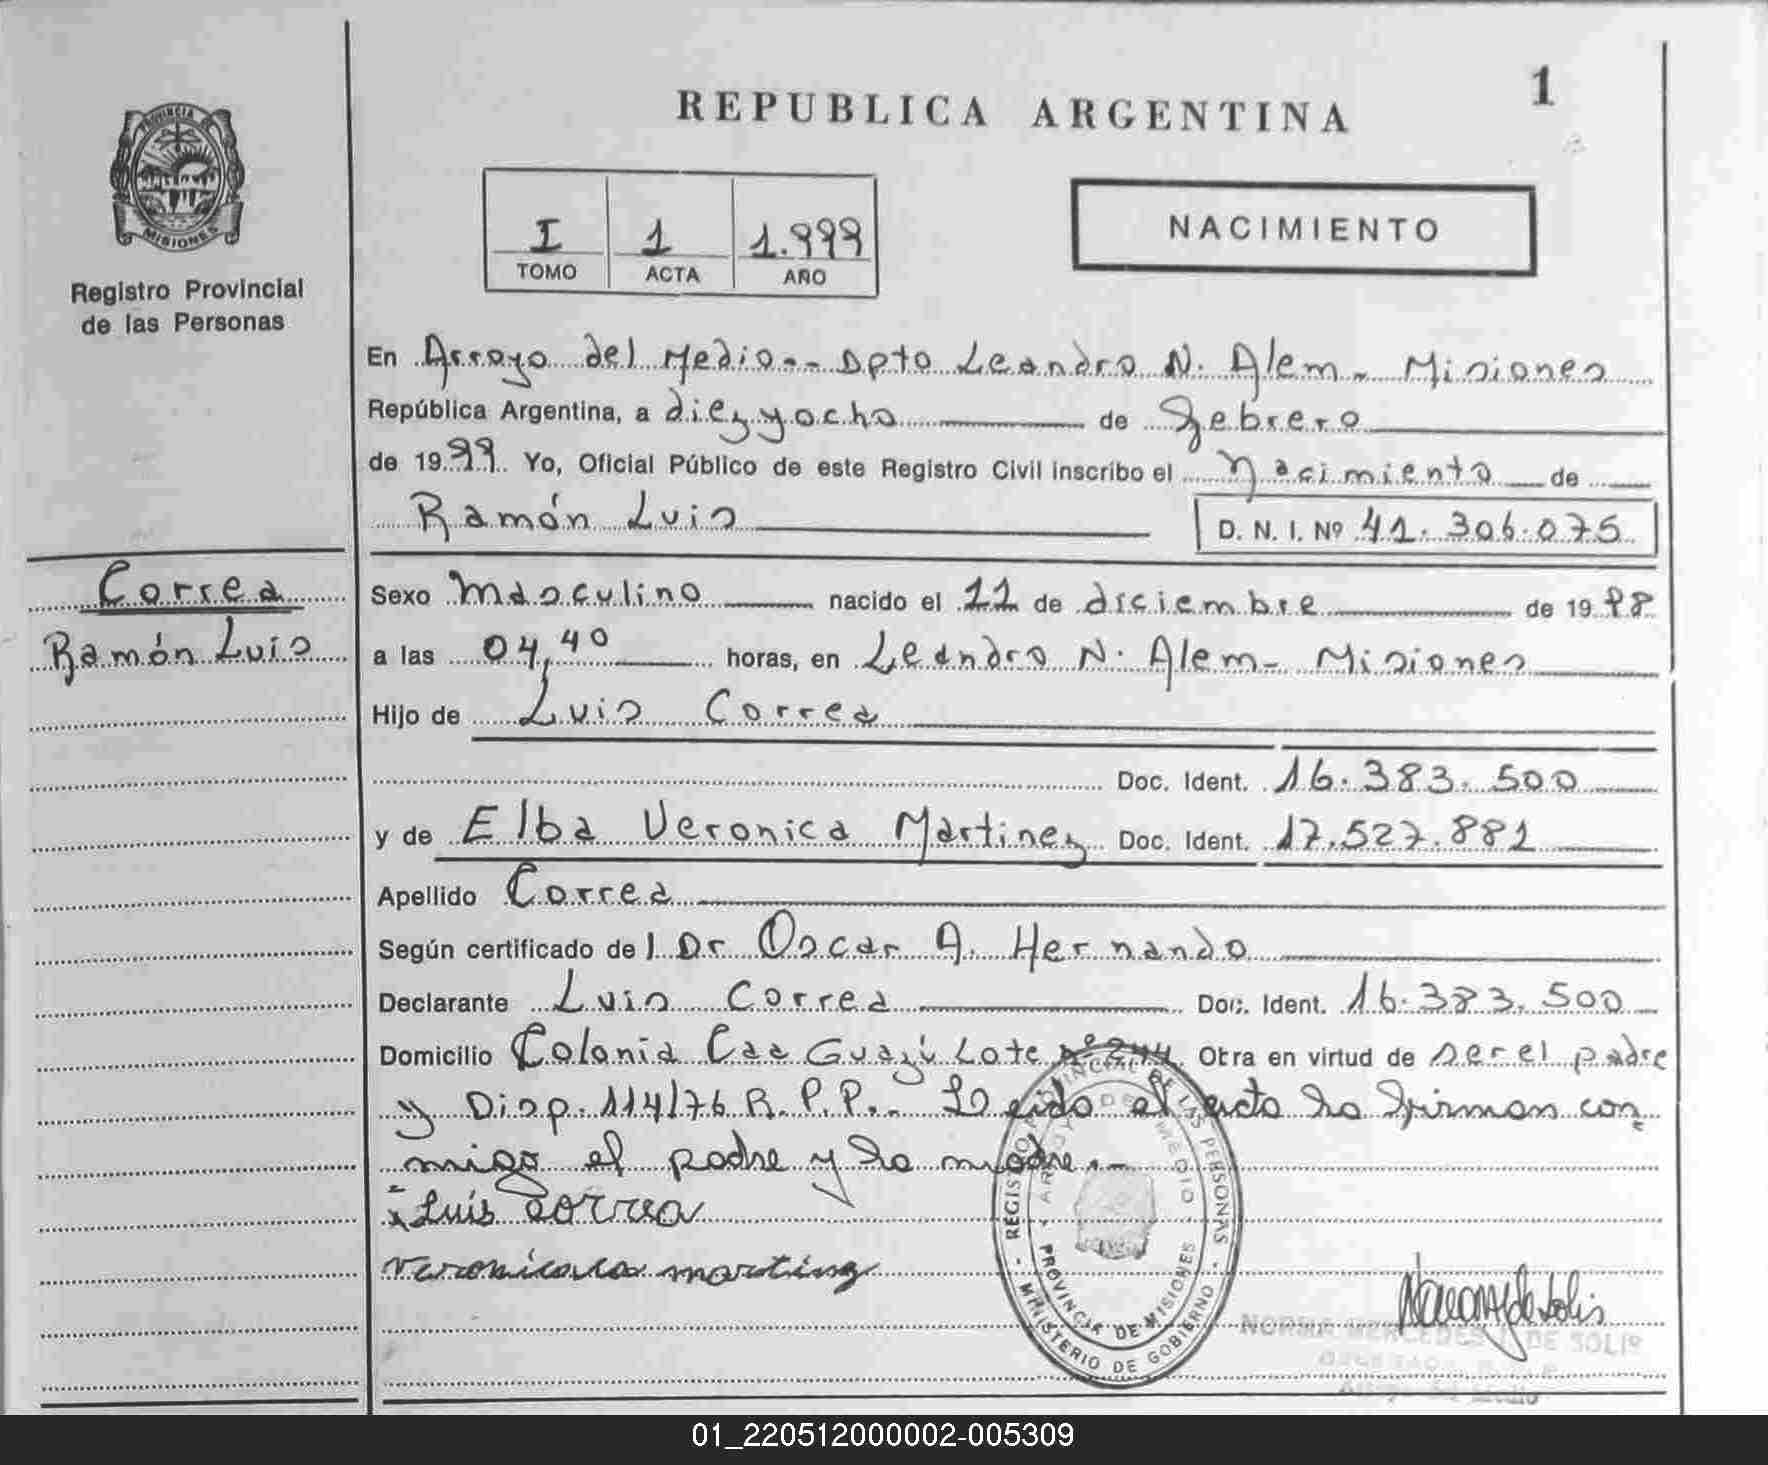 REPUBLICA ARGENTINA
1
PROVINCIA DE
MISIONES
Registro Provincial
de las Personas
I 1 1.999
TOMO ACTA AÑO
NACIMIENTO
En Arroyo del Medio-- Dpto Leandro N. Alem - Misiones
República Argentina, a diez y ocho de Febrero
de 1999 Yo, Oficial Público de este Registro Civil inscribo el Nacimiento de
Ramón Luis
D. N. I. Nº 41.306.075
Correa
Ramón Luis
Sexo Masculino nacido el 11 de diciembre de 1998
a las 04,40 horas, en Leandro N. Alem - Misiones
Hijo de Luis Correa
Doc. Ident. 16.383.500
y de Elba Veronica Martinez Doc. Ident. 17.527.881
Apellido Correa
Según certificado de l Dr Oscar A. Hernando
Declarante Luis Correa Doc. Ident. 16.383.500
Domicilio Colonia Caa Guazú Lote Otra en virtud de ser el padre
y Disp. 114/76 R.P.P.- Leido el acta la firman con
migo el padre y la madre.-
Luis Correa
martinez
REGISTRO PROVINCIAL DE LAS PERSONAS
MINISTERIO DE GOBIERNO
ARROYO DEL MEDIO
PROVINCIA DE MISIONES
NORMA MERCEDES DE SOLIS
Arroyo del Medio
01_220512000002-005309